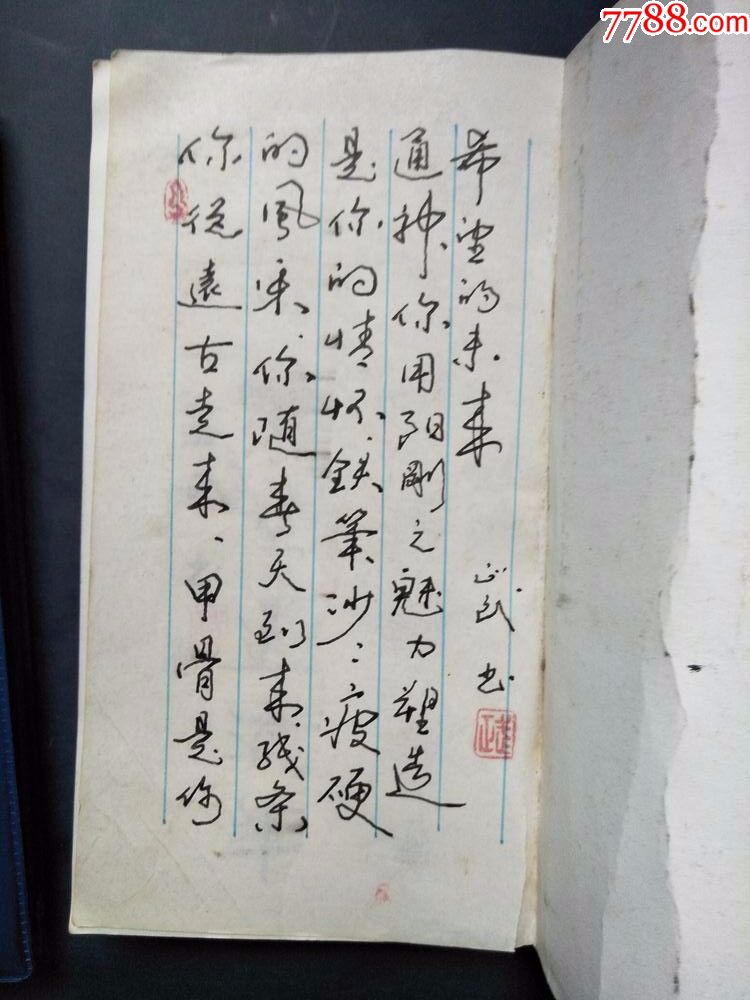 7788.com
你從遠古走来、甲骨是你
的風采、你随春天到来、线条
是你的情怀、鉄筆沙〻瘦硬
通神、你用阳刚之魅力塑造
希望的未来
正武书